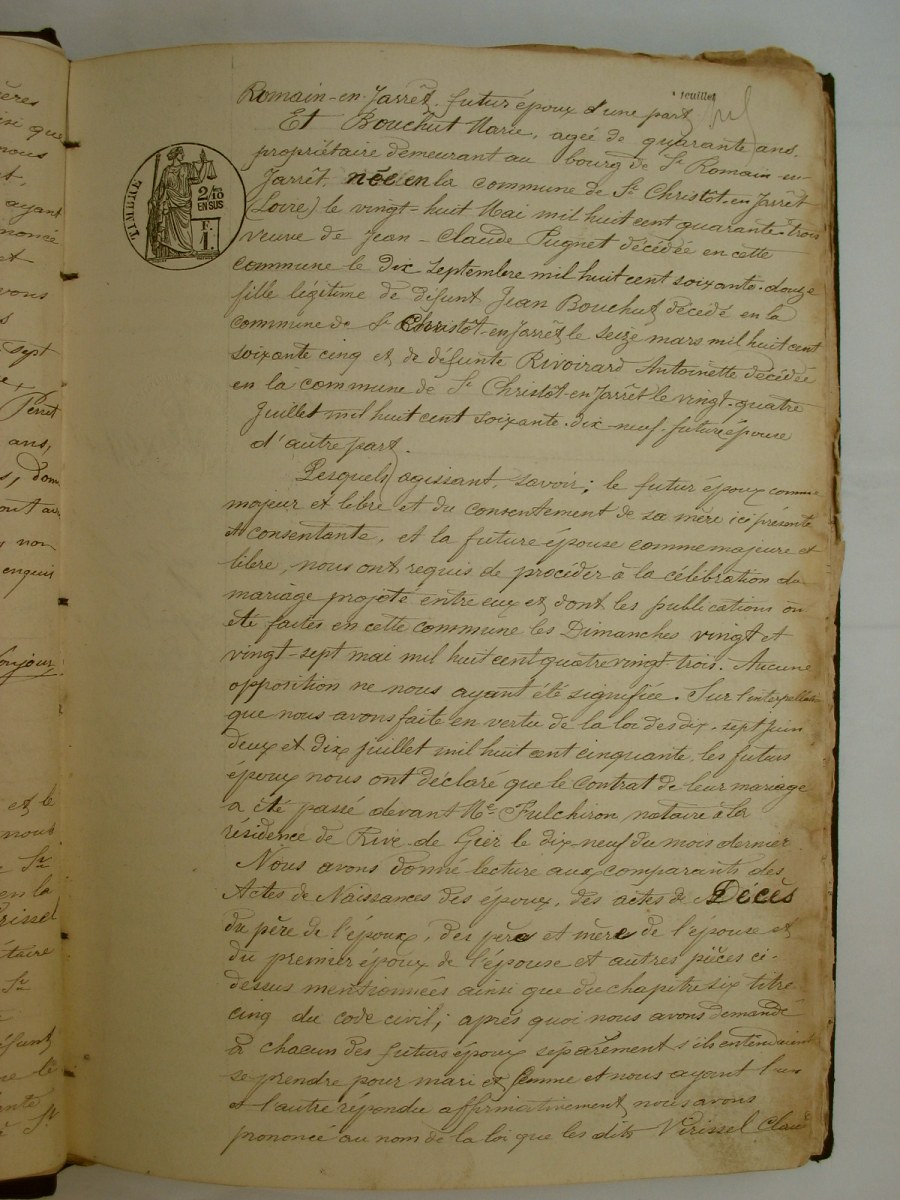 ères
si que
nous
ayant
noncé
et
vous
s
sept
Perret
ans,
s, dom
ont au
non
enquis
onjour
et le
nous
St
en la
risset
taire
St
éfunt
me le
ante
St
TIMBRE
2/10
EN SUS
F.
1.
feuillet
Romain-en-Jarrêt, futur époux d'une part,
Et Bouchut Marie, agée de quarante ans,
propriétaire demeurant au bourg de St Romain-en-
Jarrêt, née en la commune de St Christôt-en-Jarrêt
(Loire) le vingt-huit Mai mil huit cent quarante-trois
veuve de Jean-Claude Pugnet décédé en cette
commune le dix Septembre mil huit cent soixante-douze
fille légitime de défunt Jean Bouchut décédé en la
commune de St Christôt-en-Jarrêt le seize mars mil huit cent
soixante cinq et de défunte Rivoirard Antoinette décédée
en la commune de St Christôt-en-Jarrêt le vingt-quatre
Juillet mil huit cent soixante-dix-neuf, future épouse
d'autre part.
Lesquels agissant, savoir; le futur époux comme
majeur et libre et du consentement de sa mère ici présente
et consentante, et la future épouse comme majeure et
libre, nous ont requis de procéder à la célébration du
mariage projeté entre eux et dont les publications on
été faites en cette commune les Dimanches vingt et
vingt-sept mai mil huit cent quatre vingt trois. Aucune
opposition ne nous ayant été signifiée. Sur l'interpellation
que nous avons faite en vertu de la loi des dix-sept juin
deux et dix juillet mil huit cent cinquante, les futurs
époux nous ont déclaré que le contrat de leur mariage
a été passé devant Me Fulchiron notaire à la
résidence de Rive-de-Gier le dix-neuf du mois dernier
Nous avons donné lecture aux comparants des
Actes de Naissances des époux, des actes de Décès
du père de l'époux, des père et mère de l'épouse et
du premier époux de l'épouse et autres pièces ci-
dessus mentionnées ainsi que du chapitre six titre
cinq du code civil; après quoi nous avons demandé
à chacun des futurs époux séparément s'ils entendaient
se prendre pour mari et femme et nous ayant l'un
et l'autre répondu affirmativement, nous avons
prononcé au nom de la loi que les dits Verissel Claude